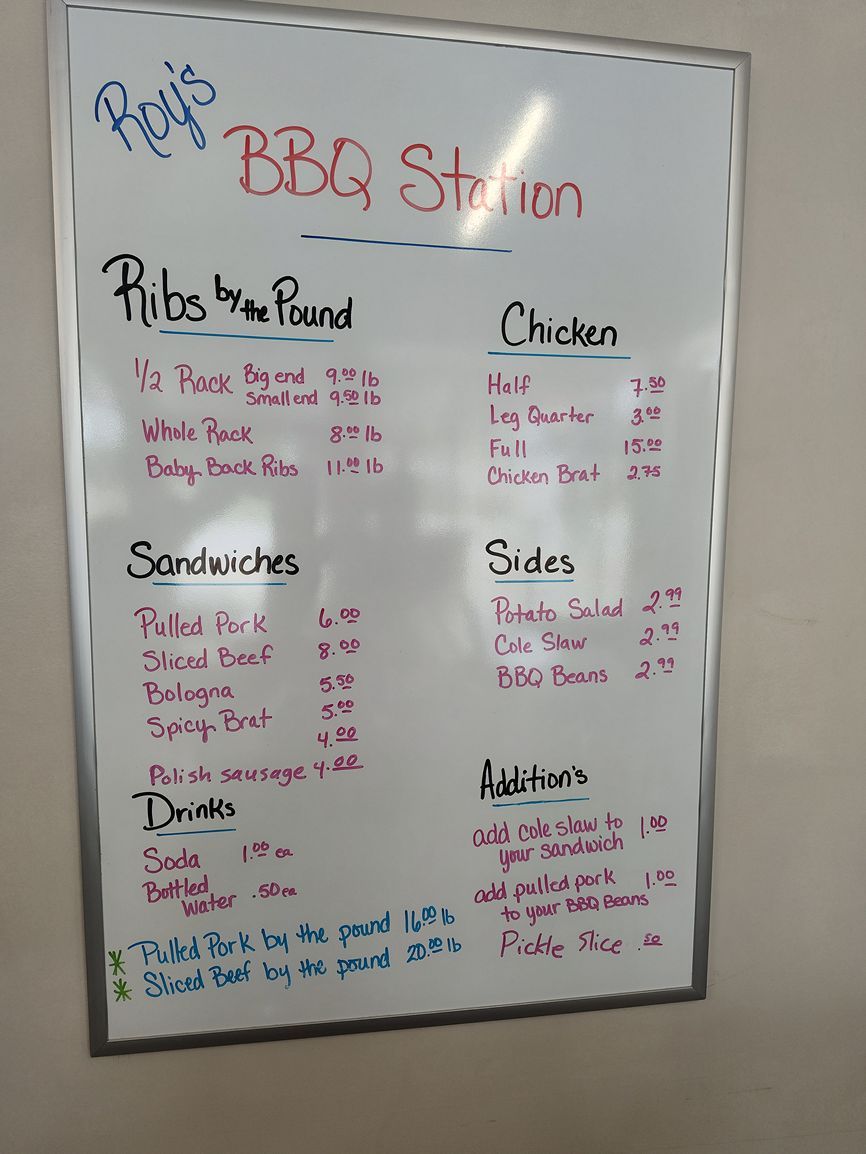 Roy's
BBQ Station
Ribs by the Pound
1/2 Rack Big end 9.00 lb
Small end 9.50 lb
Whole Rack 8.00 lb
Baby Back Ribs 11.00 lb
Chicken
Half 7.50
Leg Quarter 3.00
Full 15.00
Chicken Brat 2.75
Sandwiches
Pulled Pork 6.00
Sliced Beef 8.00
Bologna 5.50
Spicy Brat 5.00
4.00
Polish sausage 4.00
Sides
Potato Salad 2.99
Cole Slaw 2.99
BBQ Beans 2.99
Drinks
Soda 1.00 ea
Bottled
Water .50 ea
Addition's
add cole slaw to 1.00
your sandwich
add pulled pork 1.00
to your BBQ Beans
Pickle Slice .50
* Pulled Pork by the pound 16.00 lb
* Sliced Beef by the pound 20.00 lb